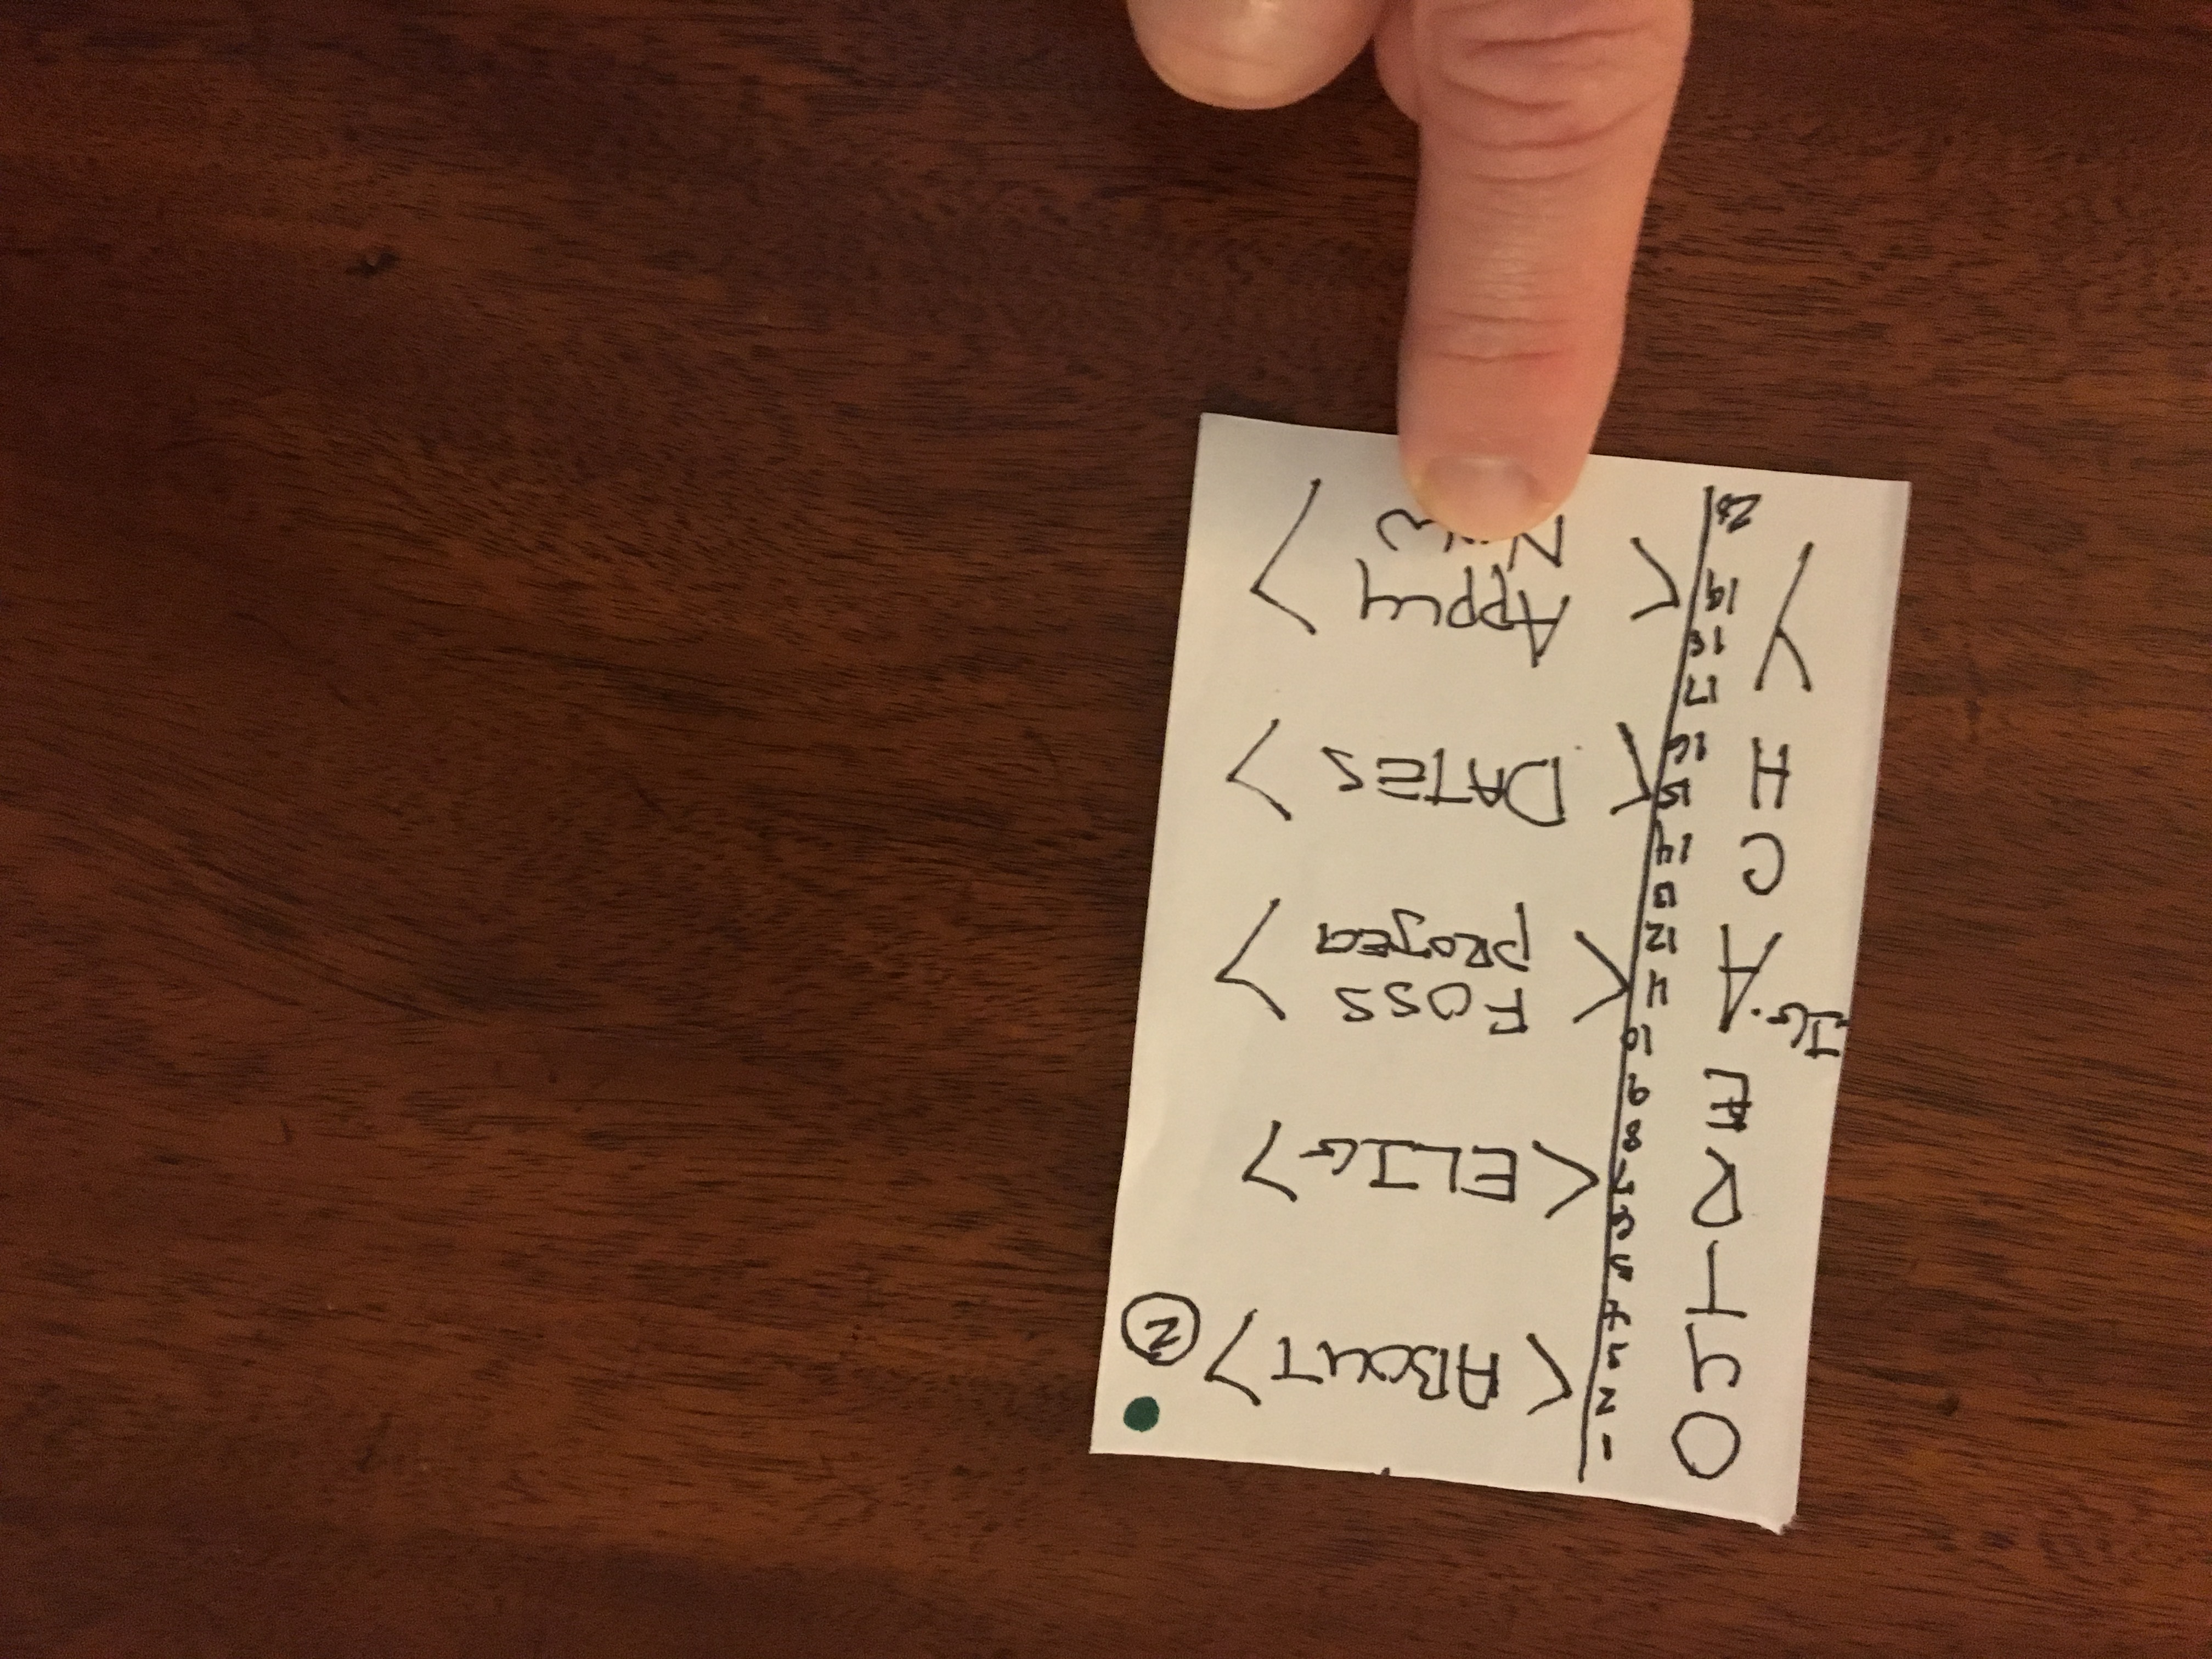 O
U
T
R
E
IG.
A
C
H
Y
1
2
3
4
5
6
7
8
9
10
11
12
13
14
15
16
17
18
19
20
< ABOUT >
2
< ELIG >
< FOSS
PROJECT >
< DATES >
< Apply
Now >